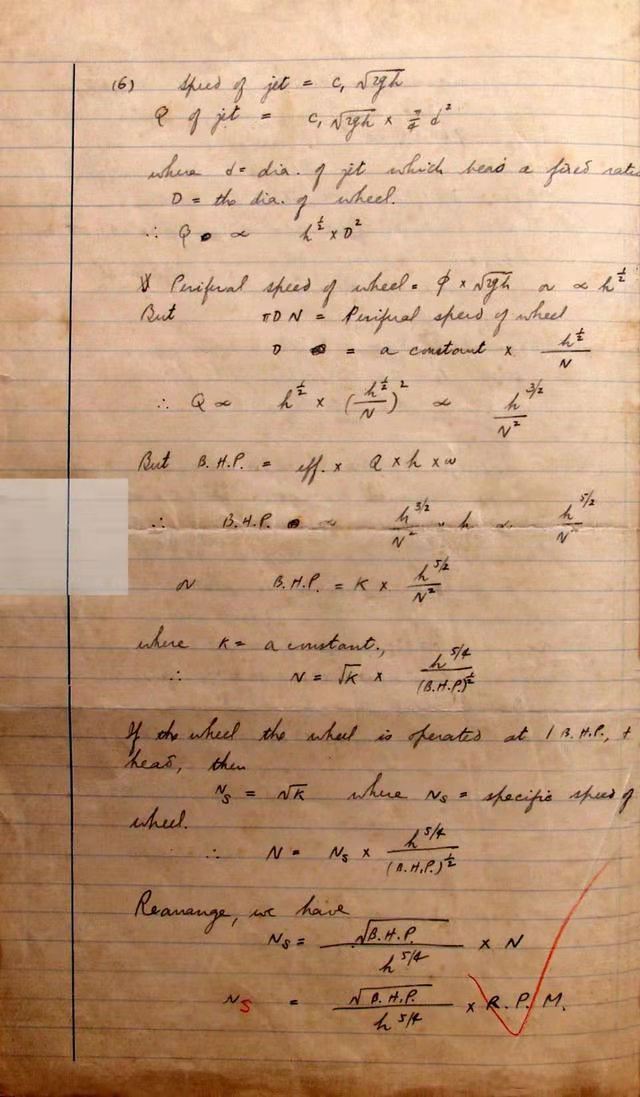 (6) Speed of jet = C₁ √2gh
Q of jet = C₁ √2gh × π/4 d²
where d = dia. of jet which bears a fixed ratio
D = the dia. of wheel.
∴ Q ∝ h^½ × D²
Periferal speed of wheel = ϕ × √2gh or ∝ h^½
But πDN = Periferal speed of wheel
D = a constant × h^½/N
∴ Q ∝ h^½ × (h^½/N)² ∝ h^3/2/N²
But B.H.P. = eff. × Q × h × w
∴ B.H.P. ∝ h^3/2/N² × h ∝ h^5/2/N²
or B.H.P. = K × h^5/2/N²
where K = a constant.,
∴ N = √K × h^5/4/(B.H.P.)^½
If the wheel the wheel is operated at 1 B.H.P., +
head, then
N_S = √K where N_S = specific speed of
wheel.
∴ N = N_S × h^5/4/(B.H.P.)^½
Rearange, we have
N_S = √B.H.P./h^5/4 × N
N_S = √B.H.P./h^5/4 × R.P.M.